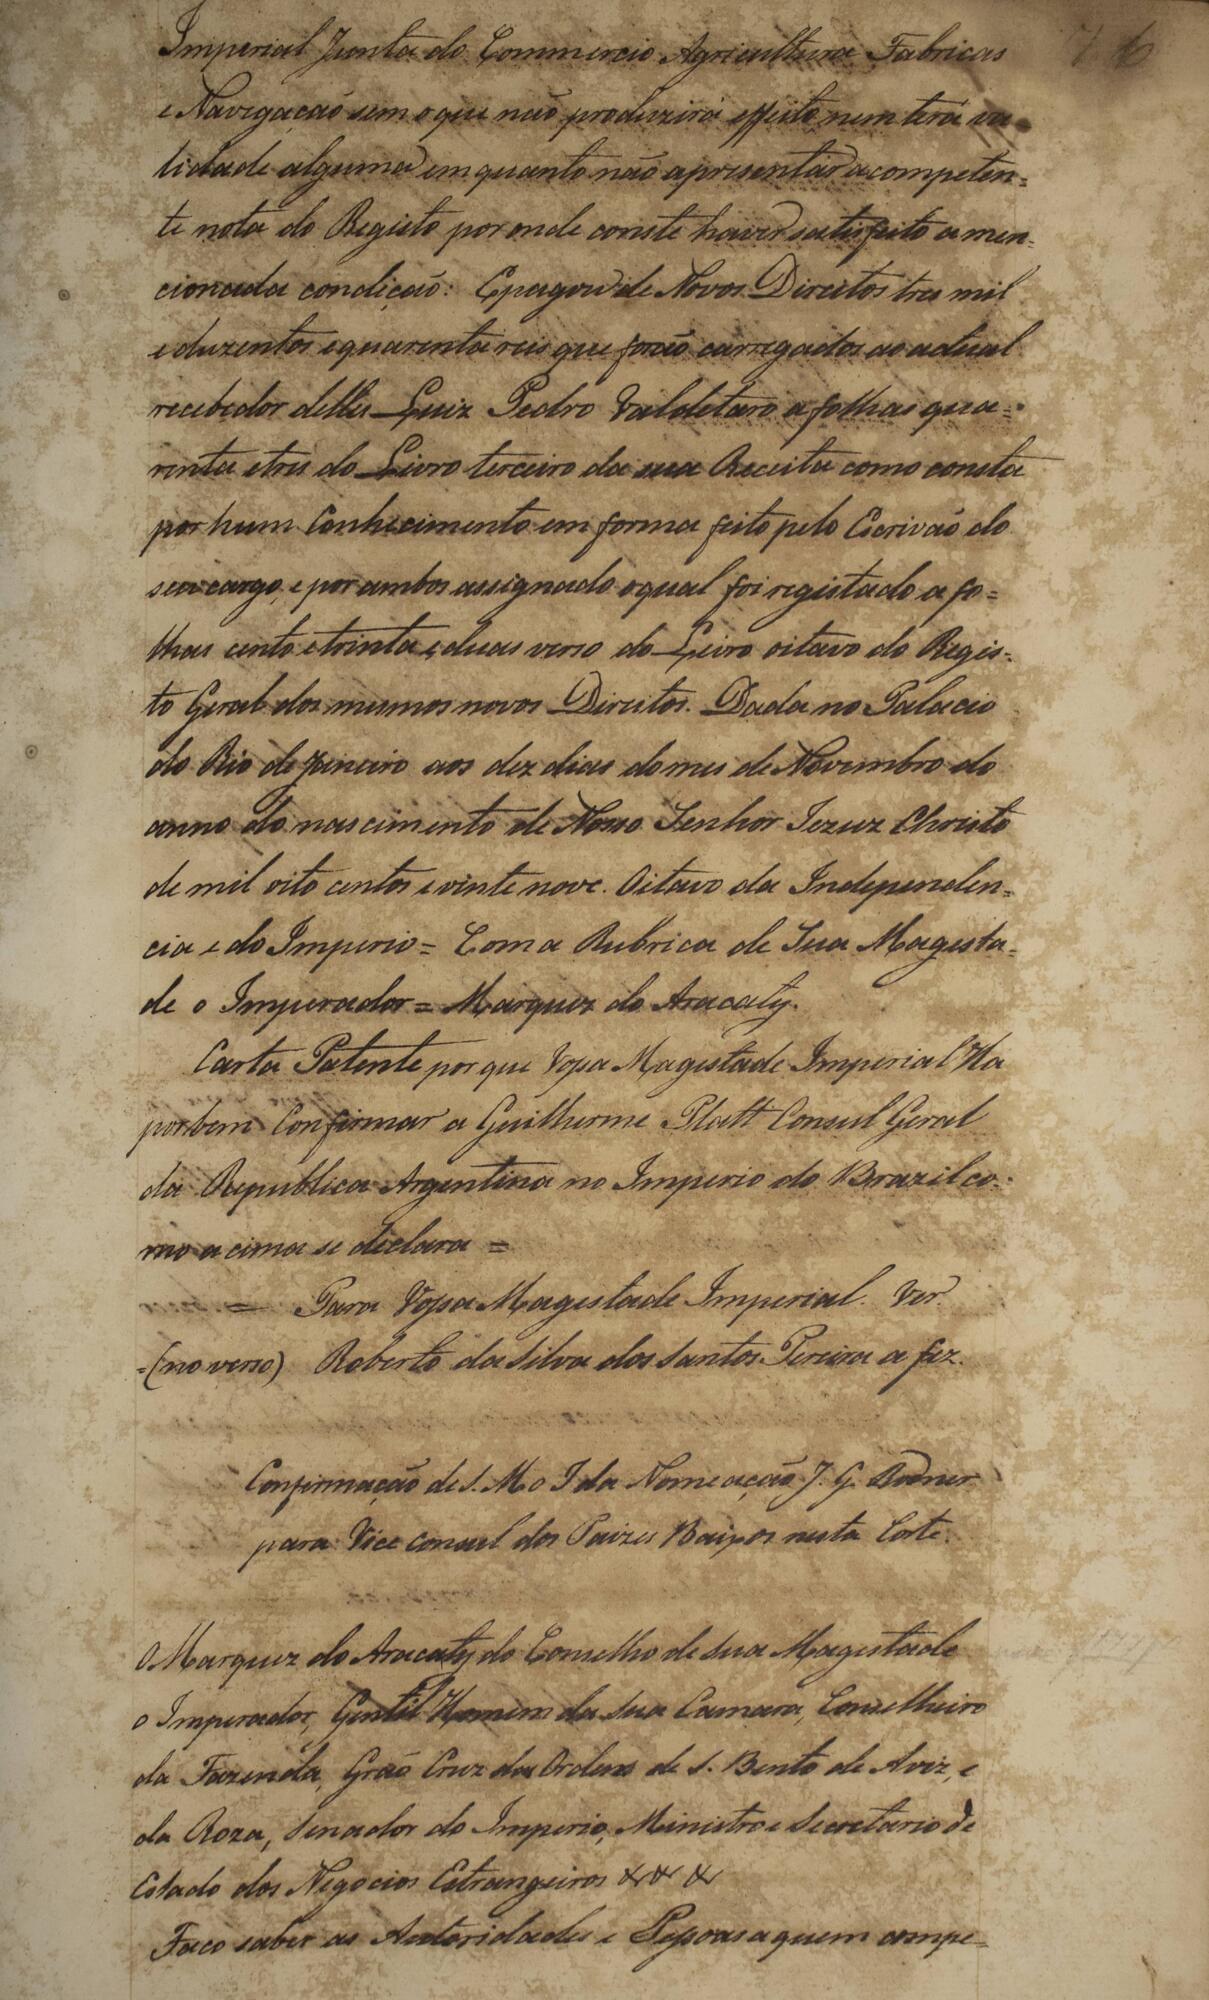 Imperial Junta do Commercio Agricultura Fabricas
e Navegação sem o que não produzirá effeito nem terá va
lidade alguma em quanto não apresentar a competen-
te nota do Registo por onde conste haver satisfeito a men-
cionada condição: E pagou de Novos Direitos tres mil
e duzentos e quarenta reis que forão carregados ao actual
recebedor delles Luiz Pedro Valdetaro a folhas qua=
renta e tres do Livro terceiro da sua Receita como consta
por hum Conhecimento em forma feito pelo Escrivão do
seu cargo, e por ambos assignado o qual foi registado a fo=
lhas cento e trinta e duas verso do Leivro oitavo do Regis-
to Geral dos mesmos novos Direitos. Dada no Palacio
do Rio de Janeiro aos dez dias do mes de Novembro do
anno do nascimento de Nosso Senhor Jezuz Christo
de mil oito centos e vinte nove. Oitavo da Independen-
cia e do Imperio = Com a Rubrica de Sua Magesta-
de o Imperador = Marquez do Aracaty.
Carta Patente por que Vossa Magestade Imperial Ha
por bem Confirmar a Guilherme Platt Consul Geral
da Republica Argentina no Imperio do Brazil co-
mo acima se declara =
= Para Vossa Magestade Imperial. Ver.
=(no verso) Roberto da Silva dos Santos Pereira a fez.
Confirmação de S. M o I da Nomeação J. G.
para Vice consul dos Paizes Baixos nesta Corte.
O Marquez do Aracaty do Conselho de Sua Magestade
o Imperador, Gentil Homem da Sua Camara, Conselheiro
da Fazenda, Grão Cruz da Ordem de S. Bento de Aviz, e
da Roza, Senador do Imperio, Ministro e Secretario de
Estado dos Negocios Estrangeiros & & &
Faço saber as Autoridades e Pessoas a quem compe-